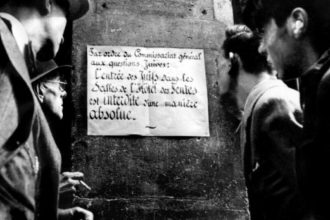 Par ordre du Commissariat général
aux questions Juives:
l'entrée des Juifs dans les
Salles de l'Hôtel des Ventes
est interdite d'une manière
absolue.